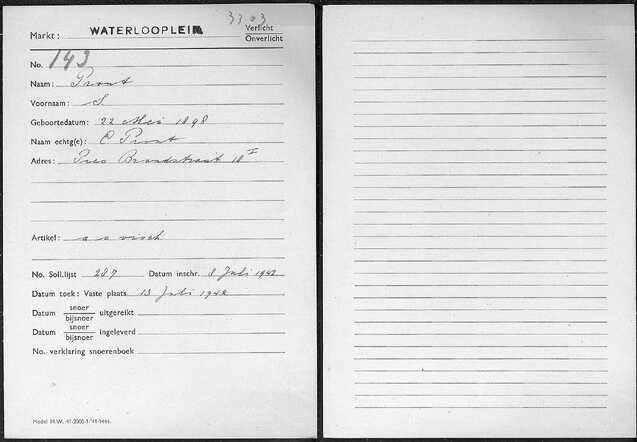 3303
Markt: WATERLOOPLEIN Verlicht
Onverlicht
No. 143
Naam: Proot
Voornaam: S
Geboortedatum: 22 Mei 1898
Naam echtg(e): C Proot
Adres: 18 I
Artikel: visch
No. Soll.lijst 287 Datum inschr. 8 Juli 1942
Datum toek: Vaste plaats 13 Juli 1942
Datum snoer
bijsnoer uitgereikt
Datum snoer
bijsnoer ingeleverd
No. verklaring snoerenboek
Model M.W.